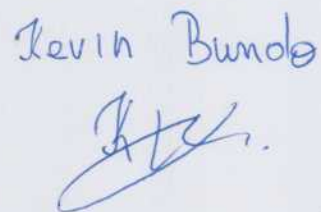 Kevin Bundo